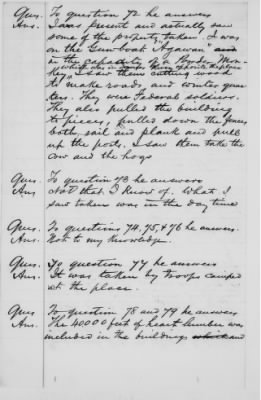 Ques. To question 72 he answers
Ans. I was present and actually saw
some of the property taken. I was
on the Gunboat "Agawan" and
in the capacity of a Powder Mon-
key, I saw them cutting wood
to make roads and winter quar-
ters. They were Federal soldiers.
They also pulled the building
to pieces, pulled down the fences,
both rail and plank and pull
up the posts. I saw them take the
cow and the hogs
Ques. To question 73 he answers
Ans. Not that I know of. What I
saw taken was in the day time
Ques. To questions 74, 75, & 76 he answers.
Ans. Not to my knowledge.
Ques. To question 77 he answers
Ans. It was taken by troops camped
at the place.
Ques. To question 78 and 79 he answers
Ans. The 40000 feet of heart lumber was
included in the buildings and